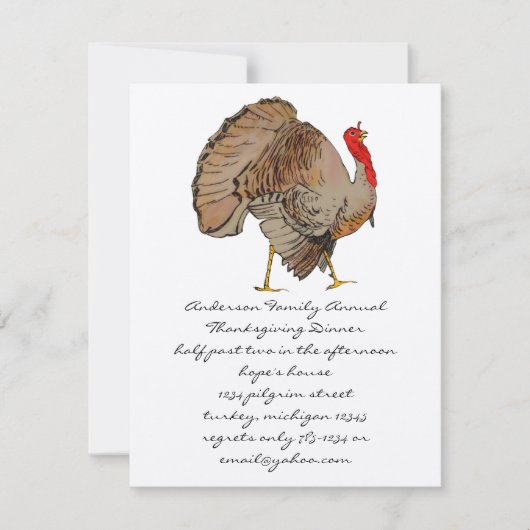 Anderson Family Annual
Thanksgiving Dinner
half past two in the afternoon
hope's house
1234 pilgrim street
turkey, michigan 12345
regrets only 785-1234 or
email@yahoo.com